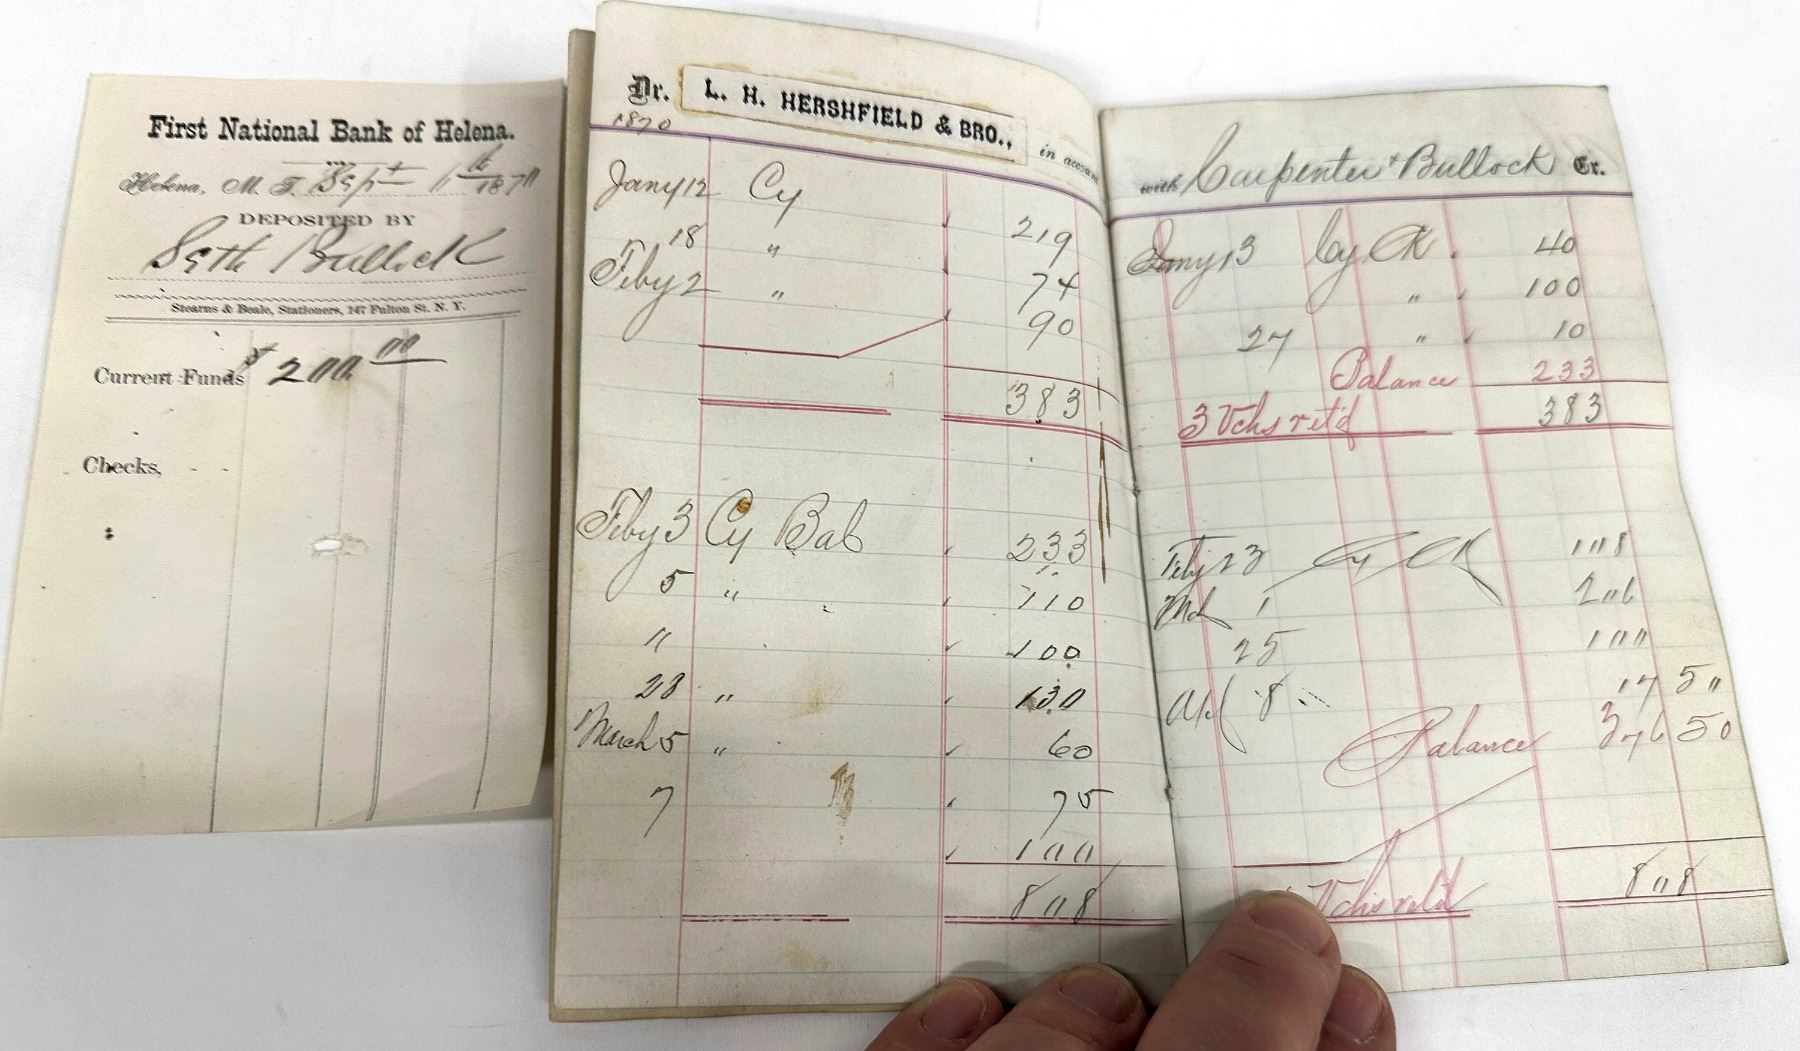 First National Bank of Helena.
Helena, M. T. Sept 1870
DEPOSITED BY
Seth Bullock
Stearns & Beale, Stationers, 147 Fulton St. N. Y.
Current Funds $ 200 00
Checks,
Dr. L. H. HERSHFIELD & BRO., in account
1870
Jany 12 Cy 219
18 " 74
Feby 2 " 90
383
Feby 3 Cy Bal 233
5 " 110
" 100
28 " 130
March 5 " 60
7 75
100
808
with Carpenter & Bullock Cr.
Jany 13 Cy Ck 40
" 100
27 " 10
Balance 233
3 Vchs ret'd 383
Feby 23 Cy Ck 108
Mch 1 206
25 100
8 17 50
Balance 376 50
Vchs ret'd 808